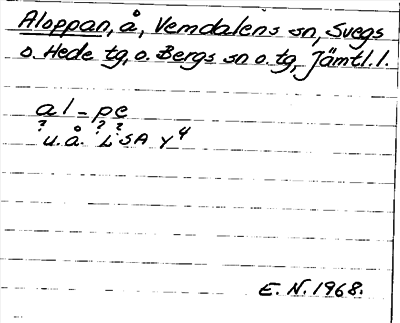 Aloppan, å, Vemdalens sn, Svegs
o. Hede tg, o. Bergs sn o. tg, Jämtl. l.
al-pe
? ? ?
u.å. L SA y4
E. N. 1968.